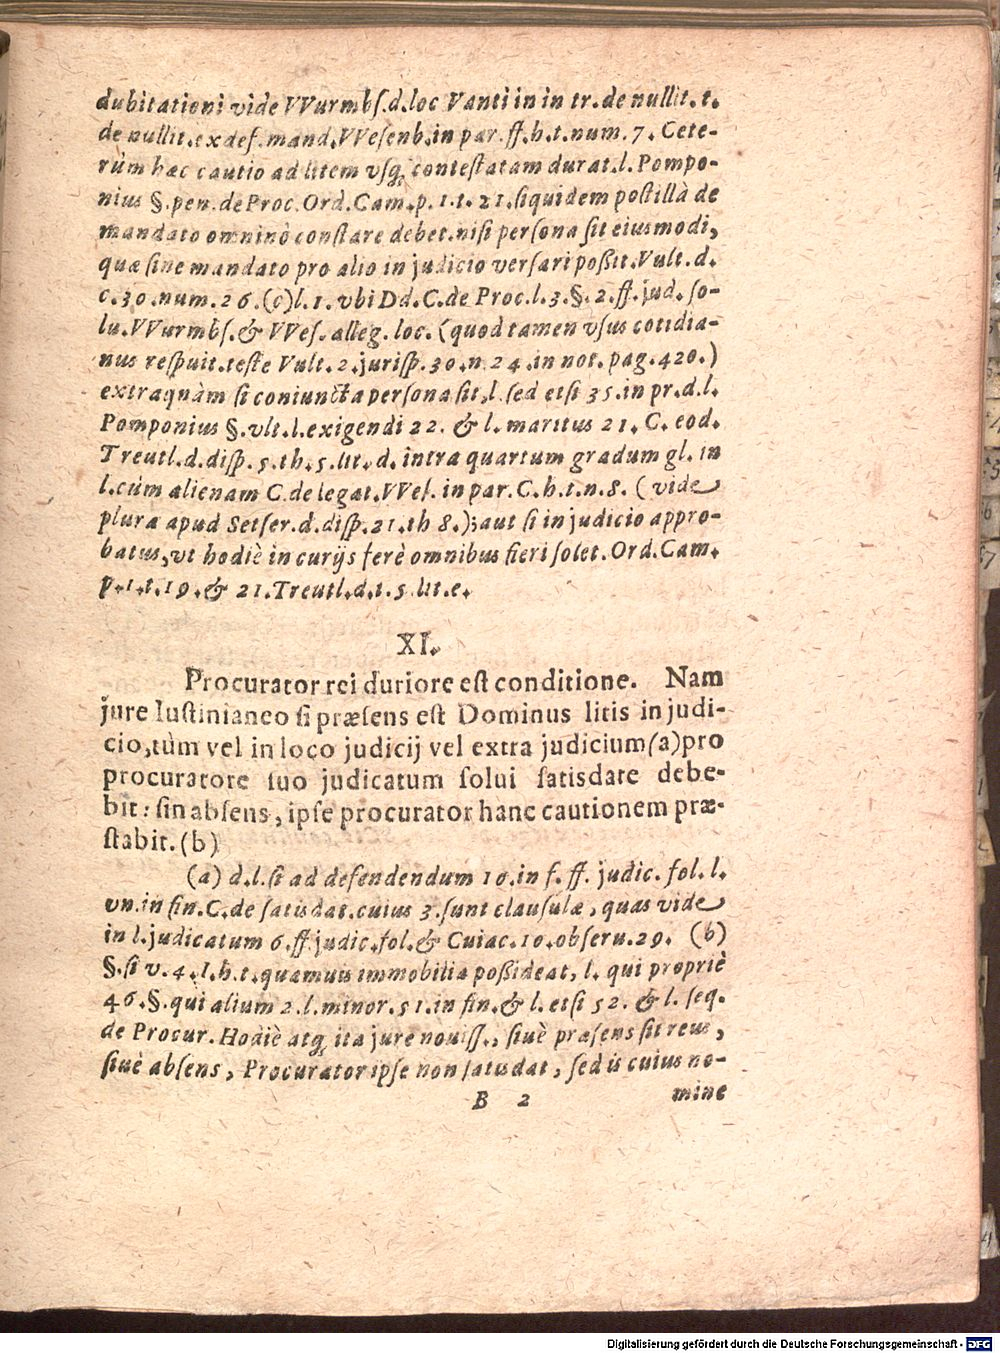 dubitationi vide VVurmbſ.d.loc Vanti in in tr.de nullit.t.
de nullit.ex def.mand.VVeſenb.in par.ff.h.t.num.7. Cete-
rùm hæc cautio ad litem vſq; conteſtatam durat.l. Pompo-
nius §.pen.de Proc.Ord.Cam.p.1.t.21.ſiquidem poſtillà de
mandato omninò conſtare debet.niſi perſona ſit eiusmodi,
quæ ſine mandato pro alio in judicio verſari poßit.Vult.d.
c.30.num.26.(c)l.1.vbi Dd.C.de Proc.l.3.§.2.ff.jud.ſo-
lu.VVurmbſ.& VVeſ.alleg.loc.(quod tamen vſus cotidia-
nus reſpuit.teſte Vult.2.juriſp.30.n.24.in not.pag.420.)
extraquàm ſi coniuncta perſona ſit,l.ſed etſi 35.in pr.d.l.
Pomponius §.vlt.l.exigendi 22. & l. maritus 21. C. eod.
Treutl.d.diſp.5.th.5.lit.d. intra quartum gradum gl. in
l.cùm alienam C.de legat.VVeſ.in par.C.h.t.n.8. (vide
plura apud Setſer.d.diſp.21.th 8.);aut ſi in judicio appro-
batus,vt hodiè in curijs ferè omnibus fieri ſolet.Ord.Cam.
p.1.t.19.& 21.Treutl.d.t.5.lit.e.
XI.
Procurator rei duriore eſt conditione. Nam
jure Iuſtinianeo ſi præſens eſt Dominus litis in judi-
cio,tùm vel in loco judicij vel extra judicium(a)pro
procuratore ſuo judicatum ſolui ſatisdare debe-
bit: ſin abſens, ipſe procurator hanc cautionem præ-
ſtabit.(b)
(a) d.l.ſi ad defendendum 10.in f. ff. judic. ſol. l.
vn.in fin.C.de ſatisdat.cuius 3.ſunt clauſulæ, quas vide
in l.judicatum 6.ff.judic.ſol.& Cuiac.10.obſeru.29. (b)
§.ſi v.4.I.h.t.quamuis immobilia poßideat, l. qui propriè
46.§.qui alium 2.l.minor.51.in fin.& l.etſi 52. & l. ſeq.
de Procur.Hodiè atq; ita jure nouiſſ., ſiuè præſens ſit reus,
ſiuè abſens, Procurator ipſe non ſatisdat, ſed is cuius no-
B 2 mine
Digitalisierung gefördert durch die Deutsche Forschungsgemeinschaft - DFG